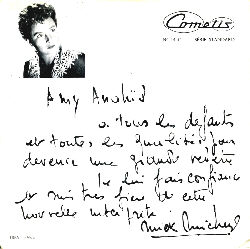 Cometis
SÉRIE STANDARD
Amy Anahid
a tous les défauts
et toutes les qualités pour
devenir une grande vedette
Je lui fais confiance
et suis très fier de cette
nouvelle interprète
Mick Micheyl